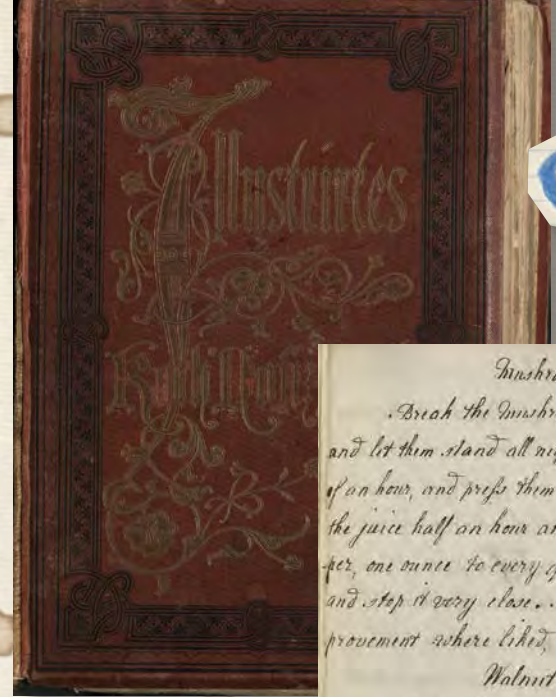 Illustrirtes
Mushr
Break the Mushr
and let them stand all nig
of an hour, and press them
the juice half an hour an
per, one ounce to every q
and stop it very close.
provement where liked,
Walnut